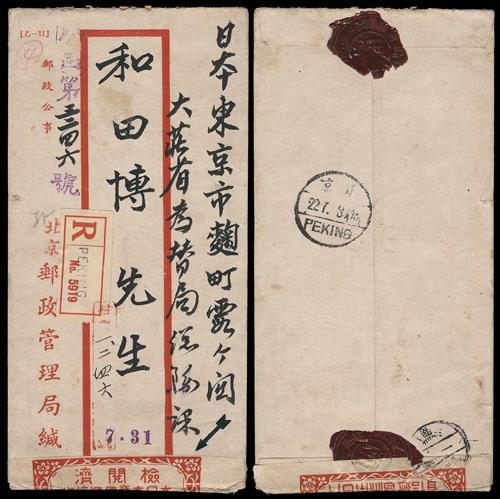 日本東京市麹町霞ヶ関
大蔵省為替局総務課
和田博先生
7.31
[乙-11]
郵政公事
第三二四六號
北京郵政管理局緘
R
PEKING
No. 5919
一二四六
檢閱濟
北京
22.7.
PEKING